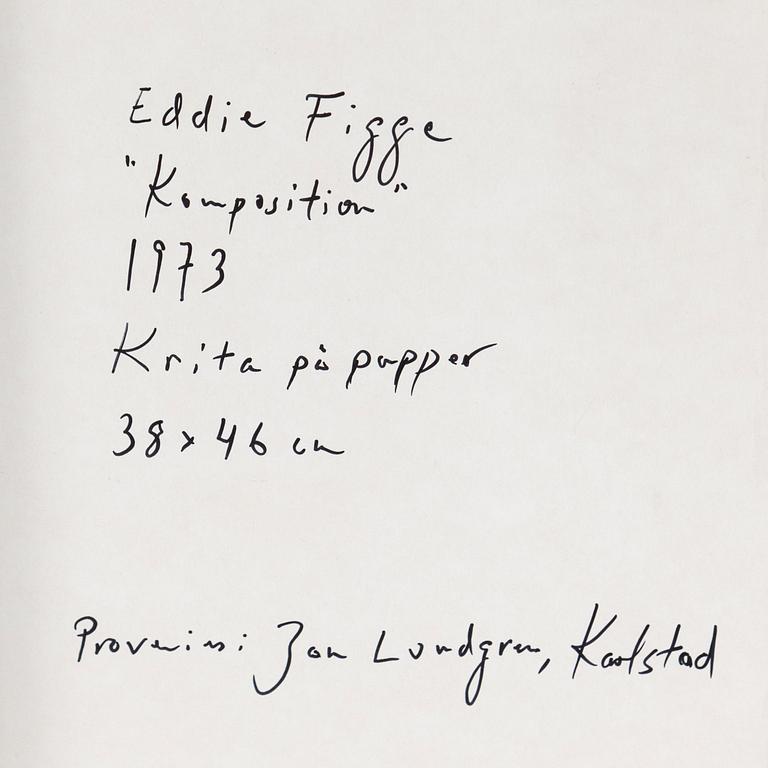 Eddie Figge
"Komposition"
1973
Krita på papper
38 x 46 cm
Proveniens: Jan Lundgren, Karlstad